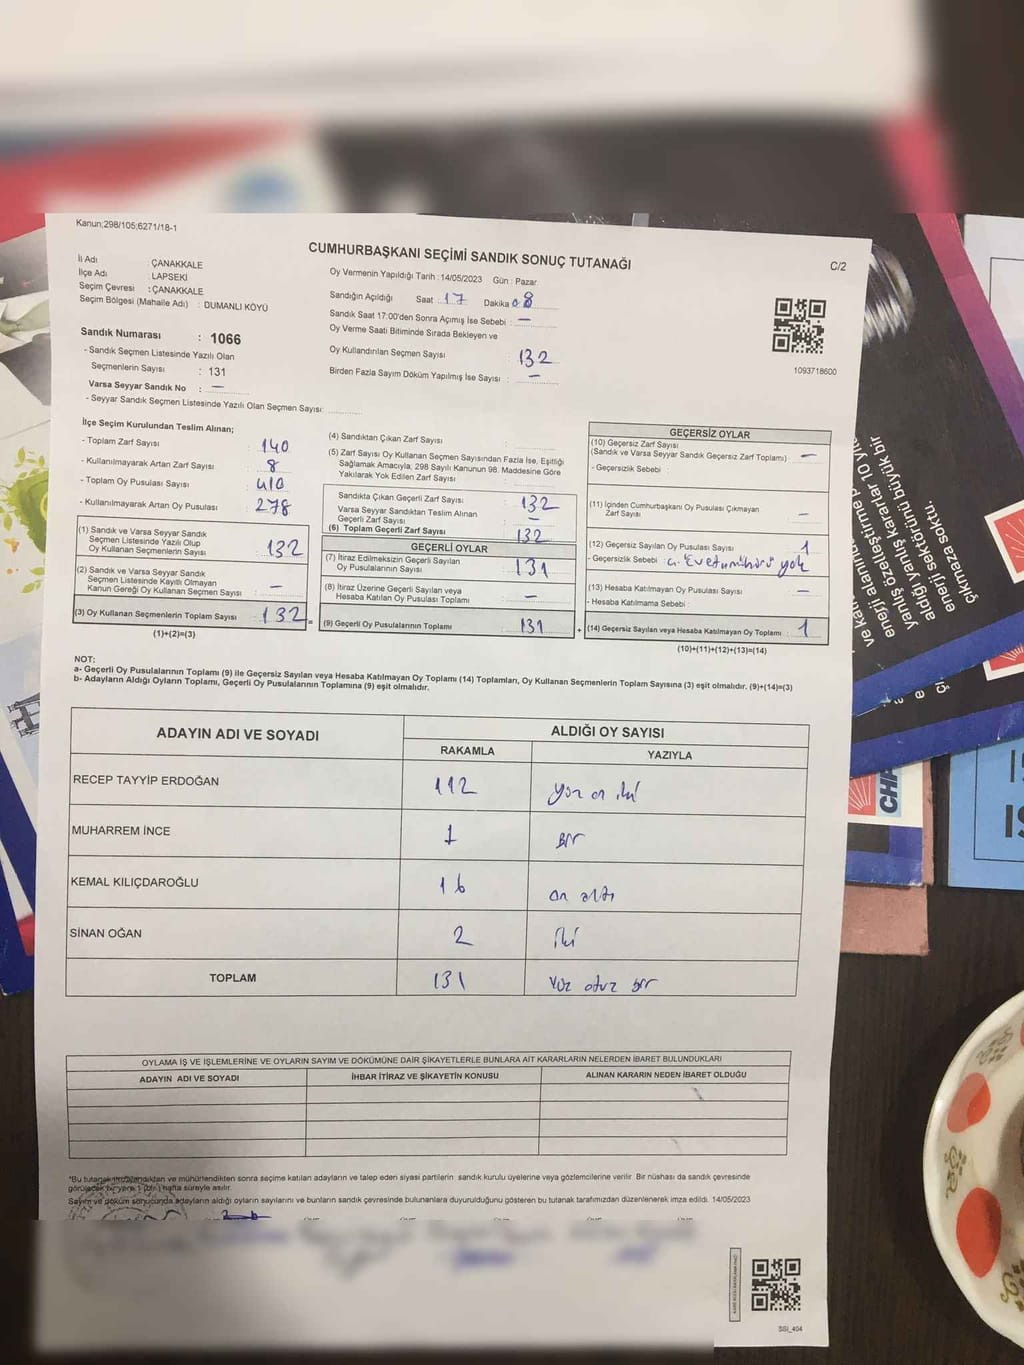 Kanun;298/105;6271/18-1
CUMHURBAŞKANI SEÇİMİ SANDIK SONUÇ TUTANAĞI
C/2
İl Adı : ÇANAKKALE
İlçe Adı : LAPSEKİ
Seçim Çevresi : ÇANAKKALE
Seçim Bölgesi (Mahalle Adı) : DUMANLI KÖYÜ
Oy Vermenin Yapıldığı Tarih :14/05/2023 Gün : Pazar
Sandığın Açıldığı Saat : 17 Dakika 08
Sandık Saat 17:00'den Sonra Açımış İse Sebebi : —
Oy Verme Saati Bitiminde Sırada Bekleyen ve
Oy Kullandırılan Seçmen Sayısı : 132
Birden Fazla Sayım Döküm Yapılmış İse Sayısı : —
1093718600
Sandık Numarası : 1066
- Sandık Seçmen Listesinde Yazılı Olan
Seçmenlerin Sayısı : 131
Varsa Seyyar Sandık No : —
- Seyyar Sandık Seçmen Listesinde Yazılı Olan Seçmen Sayısı:
İlçe Seçim Kurulundan Teslim Alınan;
- Toplam Zarf Sayısı : 140
- Kullanılmayarak Artan Zarf Sayısı : 8
- Toplam Oy Pusulası Sayısı : 410
- Kullanılmayarak Artan Oy Pusulası : 278
(1) Sandık ve Varsa Seyyar Sandık
Seçmen Listesinde Yazılı Olup
Oy Kullanan Seçmenlerin Sayısı : 132
(2) Sandık ve Varsa Seyyar Sandık
Seçmen Listesinde Kayıtlı Olmayan
Kanun Gereği Oy Kullanan Seçmen Sayısı : —
(3) Oy Kullanan Seçmenlerin Toplam Sayısı : 132
(1)+(2)=(3)
(4) Sandıktan Çıkan Zarf Sayısı :
(5) Zarf Sayısı Oy Kullanan Seçmen Sayısından Fazla İse, Eşitliği
Sağlamak Amacıyla; 298 Sayılı Kanunun 98. Maddesine Göre
Yakılarak Yok Edilen Zarf Sayısı :
Sandıkta Çıkan Geçerli Zarf Sayısı : 132
Varsa Seyyar Sandıktan Teslim Alınan
Geçerli Zarf Sayısı : —
(6) Toplam Geçerli Zarf Sayısı : 132
GEÇERLİ OYLAR
(7) İtiraz Edilmeksizin Geçerli Sayılan
Oy Pusulalarının Sayısı : 131
(8) İtiraz Üzerine Geçerli Sayılan veya
Hesaba Katılan Oy Pusulası Toplamı : —
(9) Geçerli Oy Pusulalarının Toplamı : 131
GEÇERSİZ OYLAR
(10) Geçersiz Zarf Sayısı
(Sandık ve Varsa Seyyar Sandık Geçersiz Zarf Toplamı) : —
- Geçersizlik Sebebi :
(11) İçinden Cumhurbaşkanı Oy Pusulası Çıkmayan
Zarf Sayısı : —
(12) Geçersiz Sayılan Oy Pusulası Sayısı : 1
- Geçersizlik Sebebi : yok
(13) Hesaba Katılmayan Oy Pusulası Sayısı : —
- Hesaba Katılmama Sebebi :
(14) Geçersiz Sayılan veya Hesaba Katılmayan Oy Toplamı : 1
(10)+(11)+(12)+(13)=(14)
NOT:
a- Geçerli Oy Pusulalarının Toplamı (9) ile Geçersiz Sayılan veya Hesaba Katılmayan Oy Toplamı (14) Toplamları, Oy Kullanan Seçmenlerin Toplam Sayısına (3) eşit olmalıdır. (9)+(14)=(3)
b- Adayların Aldığı Oyların Toplamı, Geçerli Oy Pusulalarının Toplamına (9) eşit olmalıdır.
ADAYIN ADI VE SOYADI ALDIĞI OY SAYISI
RAKAMLA YAZIYLA
RECEP TAYYİP ERDOĞAN 112 yüz on iki
MUHARREM İNCE 1 Bir
KEMAL KILIÇDAROĞLU 16 on altı
SİNAN OĞAN 2 iki
TOPLAM 131 Yüz otuz bir
OYLAMA İŞ VE İŞLEMLERİNE VE OYLARIN SAYIM VE DÖKÜMÜNE DAİR ŞİKAYETLERLE BUNLARA AİT KARARLARIN NELERDEN İBARET BULUNDUKLARI
ADAYIN ADI VE SOYADI İHBAR İTİRAZ VE ŞİKAYETİN KONUSU ALINAN KARARIN NEDEN İBARET OLDUĞU
*Bu tutanak ve mühürlendikten sonra seçime katılan adayların ve talep eden siyasi partilerin sandık kurulu üyelerine veya gözlemcilerine verilir. Bir nüshası da sandık çevresinde
görülecek bir yere 1 (bir) hafta süreyle asılır.
Sayım ve döküm sonucunda adayların aldığı oyların sayılarını ve bunların sandık çevresinde bulunanlara duyurulduğunu gösteren bu tutanak tarafımızdan düzenlenerek imza edildi. 14/05/2023
SSI_404
yanlış özelleştirme
yanlış kararlar 10 yılda
enerji sektörünü büyük bir
çıkmaza soktu.
CHP